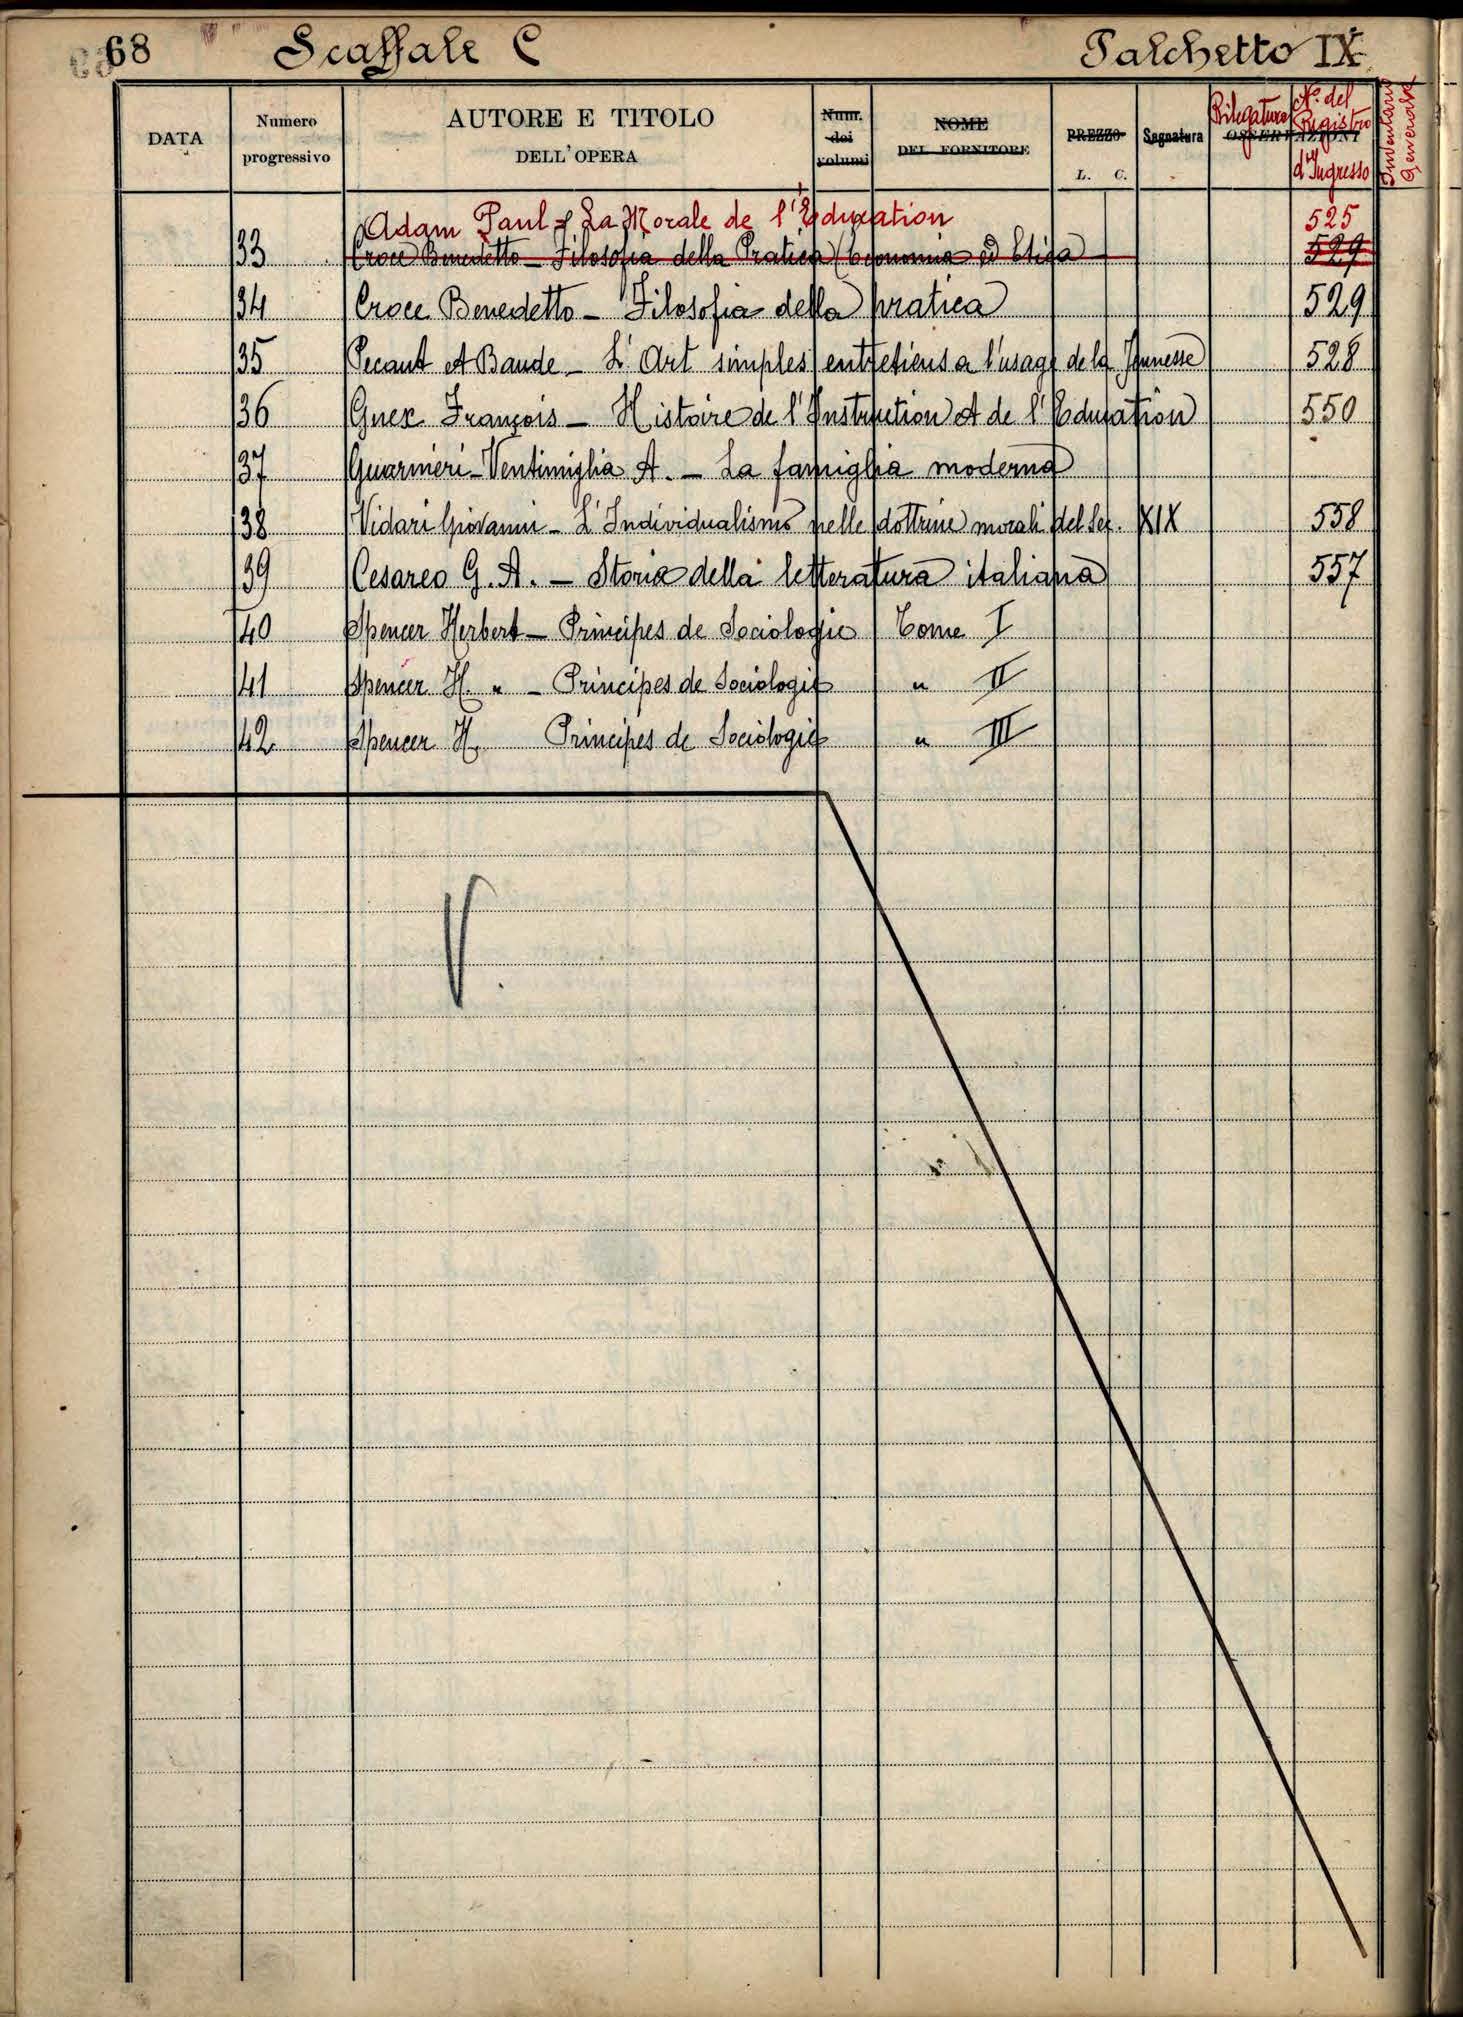 68 Scaffale C Palchetto IX
DATA Numero progressivo AUTORE E TITOLO DELL'OPERA Num. dei volumi NOME DEL FORNITORE PREZZO L. C. Segnatura OSSERVAZIONI Rilegatura N.° del Registro d'Ingresso Inventario Generale
Adam Paul - La Morale de l'Education 525
33 Croce Benedetto - Filosofia della Pratica (Economia ed Etica 529
34 Croce Benedetto - Filosofia della pratica 529
35 Pecaut et Baude - L'Art simples entretiens a l'usage de la Jeunesse 528
36 Guex François - Histoire de l'Instruction et de l'Education 550
37 Guarnieri-Ventimiglia A. - La famiglia moderna
38 Vidari Giovanni - L'Individualismo nelle dottrine morali del Sec. XIX 558
39 Cesareo G. A. - Storia della letteratura italiana 557
40 Spencer Herbert - Principes de Sociologie Tome I
41 Spencer H. " - Principes de Sociologie " II
42 Spencer H. Principes de Sociologie " III
V.